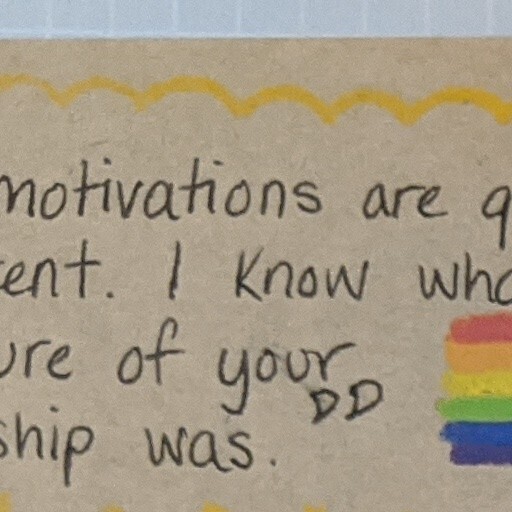 motivations are q
ent. I know who
ure of your
DD
ship was.